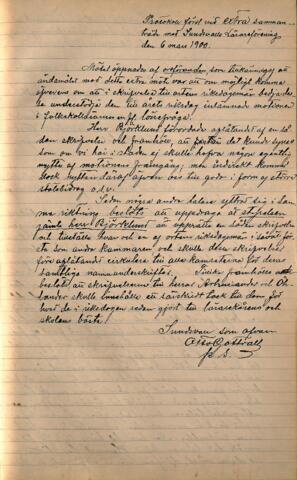 Protokoll fördt vid extra samman-
träde med Sundsvalls Lärareförening
den 6 mars 1900.
Mötet öppnades af ordföranden, som tillkännagaf att
ändamålet med detta extra möte var att om möjligt komma
öfverens om att i skrifvelse till orten riksdagsmän bedja
de understödja den till årets riksdag inlämnade motionen
i folkskollärarnes lönefråga.
Herr Björklund förordade aflåtandet af en så-
dan skrifvelse och framhöll, att fastän det kunde synas
som om vi här i staden ej skulle hafva någon egentlig
nytta af motionens framgång, men indirekt komme
dock nyttan däraf äfven oss till godo i form af större
statsbidrag o.s.v.
Sedan några andra talare yttrat sig i sam-
ma riktning beslöts att uppdraga åt styrelsen
jämte herr Björklund att uppsätta en sådan skrifvelse
och tillställa hvar och en af ortens riksdagsmän i såväl för-
sta som andra kammaren och skulle dessa skrifvelser
före aflåtandet cirkulera till alla kamraterna för deras
samtliga namnunderskrifter.
beslöt att skrifvelserna till herrar och Oh-
lander skulle innehålla ett särskildt tack till dem för
hvad de i riksdagen redan gjort till lärarekårens och
skolans bästa!
Sundsvall som ofvan
Otto Gottvall